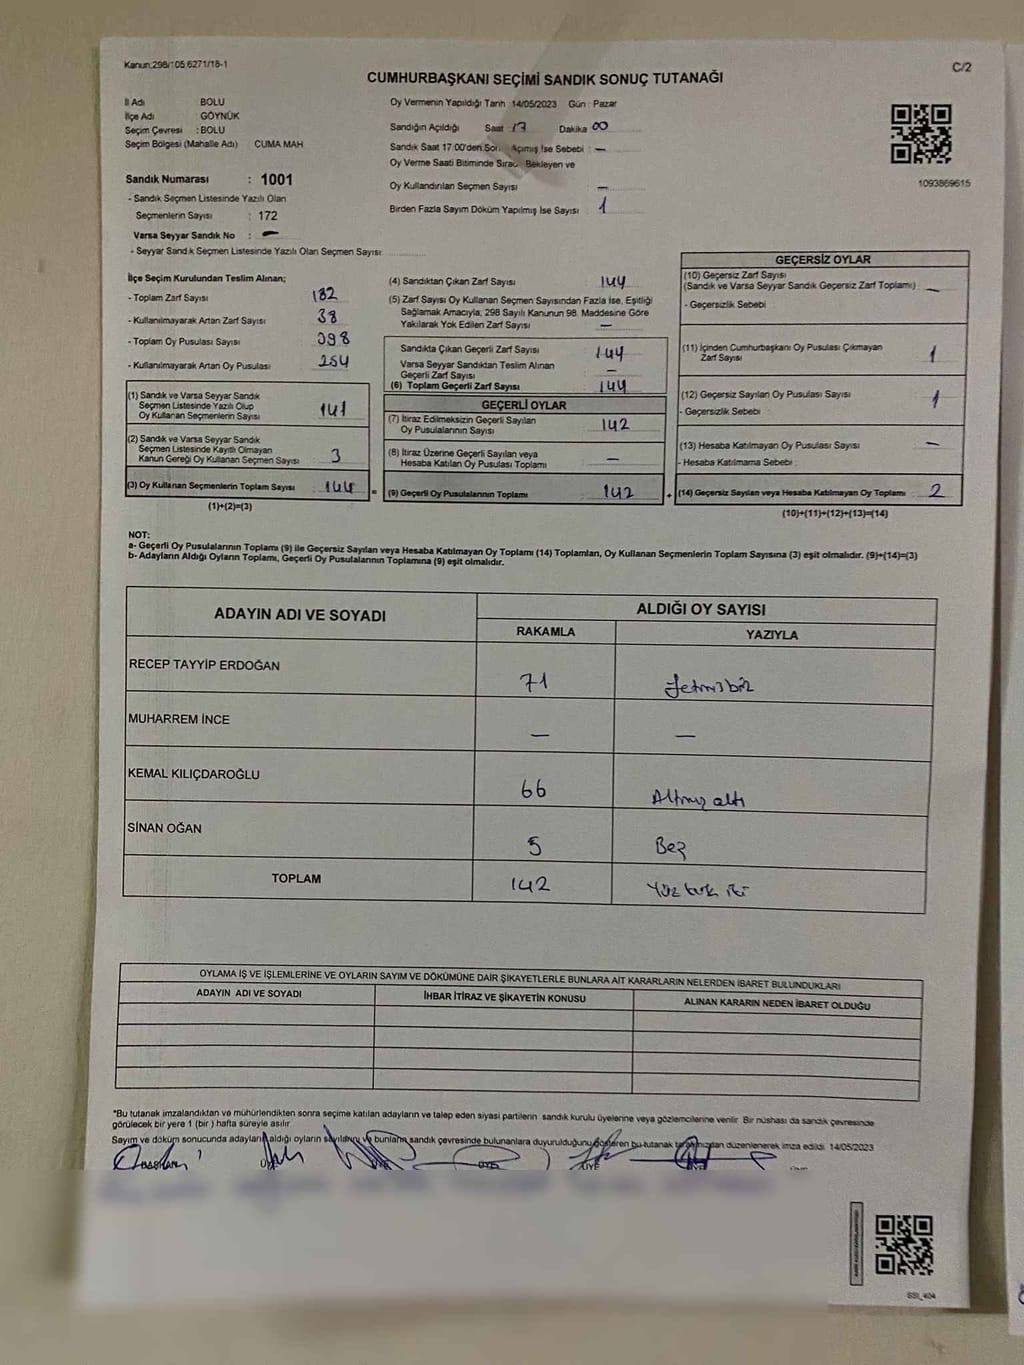 Kanun:298/105,6271/18-1
C/2
CUMHURBAŞKANI SEÇİMİ SANDIK SONUÇ TUTANAĞI
İl Adı BOLU
İlçe Adı GÖYNÜK
Seçim Çevresi : BOLU
Seçim Bölgesi (Mahalle Adı) CUMA MAH
Sandık Numarası : 1001
- Sandık Seçmen Listesinde Yazılı Olan
Seçmenlerin Sayısı : 172
Varsa Seyyar Sandık No : —
- Seyyar Sandık Seçmen Listesinde Yazılı Olan Seçmen Sayısı:
Oy Vermenin Yapıldığı Tarih 14/05/2023 Gün : Pazar
Sandığın Açıldığı Saat 17 Dakika 00
Sandık Saat 17:00'den Açımış İse Sebebi : —
Oy Verme Saati Bitiminde Bekleyen ve
Oy Kullandırılan Seçmen Sayısı —
Birden Fazla Sayım Döküm Yapılmış İse Sayısı 1
1093869615
İlçe Seçim Kurulundan Teslim Alınan;
- Toplam Zarf Sayısı 182
- Kullanılmayarak Artan Zarf Sayısı 38
- Toplam Oy Pusulası Sayısı 398
- Kullanılmayarak Artan Oy Pusulası 254
(1) Sandık ve Varsa Seyyar Sandık
Seçmen Listesinde Yazılı Olup
Oy Kullanan Seçmenlerin Sayısı 141
(2) Sandık ve Varsa Seyyar Sandık
Seçmen Listesinde Kayıtlı Olmayan
Kanun Gereği Oy Kullanan Seçmen Sayısı 3
(3) Oy Kullanan Seçmenlerin Toplam Sayısı 144
(1)+(2)=(3)
(4) Sandıktan Çıkan Zarf Sayısı 144
(5) Zarf Sayısı Oy Kullanan Seçmen Sayısından Fazla İse, Eşitliği
Sağlamak Amacıyla, 298 Sayılı Kanunun 98. Maddesine Göre
Yakılarak Yok Edilen Zarf Sayısı —
Sandıkta Çıkan Geçerli Zarf Sayısı 144
Varsa Seyyar Sandıktan Teslim Alınan
Geçerli Zarf Sayısı —
(6) Toplam Geçerli Zarf Sayısı 144
GEÇERLİ OYLAR
(7) İtiraz Edilmeksizin Geçerli Sayılan
Oy Pusulalarının Sayısı 142
(8) İtiraz Üzerine Geçerli Sayılan veya
Hesaba Katılan Oy Pusulası Toplamı —
= (9) Geçerli Oy Pusulalarının Toplamı 142
GEÇERSİZ OYLAR
(10) Geçersiz Zarf Sayısı
(Sandık ve Varsa Seyyar Sandık Geçersiz Zarf Toplamı) —
- Geçersizlik Sebebi
(11) İçinden Cumhurbaşkanı Oy Pusulası Çıkmayan
Zarf Sayısı 1
(12) Geçersiz Sayılan Oy Pusulası Sayısı 1
- Geçersizlik Sebebi
(13) Hesaba Katılmayan Oy Pusulası Sayısı —
- Hesaba Katılmama Sebebi :
+ (14) Geçersiz Sayılan veya Hesaba Katılmayan Oy Toplamı 2
(10)+(11)+(12)+(13)=(14)
NOT:
a- Geçerli Oy Pusulalarının Toplamı (9) ile Geçersiz Sayılan veya Hesaba Katılmayan Oy Toplamı (14) Toplamları, Oy Kullanan Seçmenlerin Toplam Sayısına (3) eşit olmalıdır. (9)+(14)=(3)
b- Adayların Aldığı Oyların Toplamı, Geçerli Oy Pusulalarının Toplamına (9) eşit olmalıdır.
ADAYIN ADI VE SOYADI ALDIĞI OY SAYISI
RAKAMLA YAZIYLA
RECEP TAYYİP ERDOĞAN 71 Yetmişbir
MUHARREM İNCE — —
KEMAL KILIÇDAROĞLU 66 Altmış altı
SİNAN OĞAN 5 Beş
TOPLAM 142 Yüz kırk iki
OYLAMA İŞ VE İŞLEMLERİNE VE OYLARIN SAYIM VE DÖKÜMÜNE DAİR ŞİKAYETLERLE BUNLARA AİT KARARLARIN NELERDEN İBARET BULUNDUKLARI
ADAYIN ADI VE SOYADI İHBAR İTİRAZ VE ŞİKAYETİN KONUSU ALINAN KARARIN NEDEN İBARET OLDUĞU
*Bu tutanak imzalandıktan ve mühürlendikten sonra seçime katılan adayların ve talep eden siyasi partilerin sandık kurulu üyelerine veya gözlemcilerine verilir. Bir nüshası da sandık çevresinde
görülecek bir yere 1 (bir) hafta süreyle asılır.
Sayım ve döküm sonucunda adayların aldığı oyların sayıldığını ve bunların sandık çevresinde bulunanlara duyurulduğunu gösteren bu tutanak tarafımızdan düzenlenerek imza edildi. 14/05/2023
BAŞKAN ÜYE ÜYE ÜYE
SSI_404